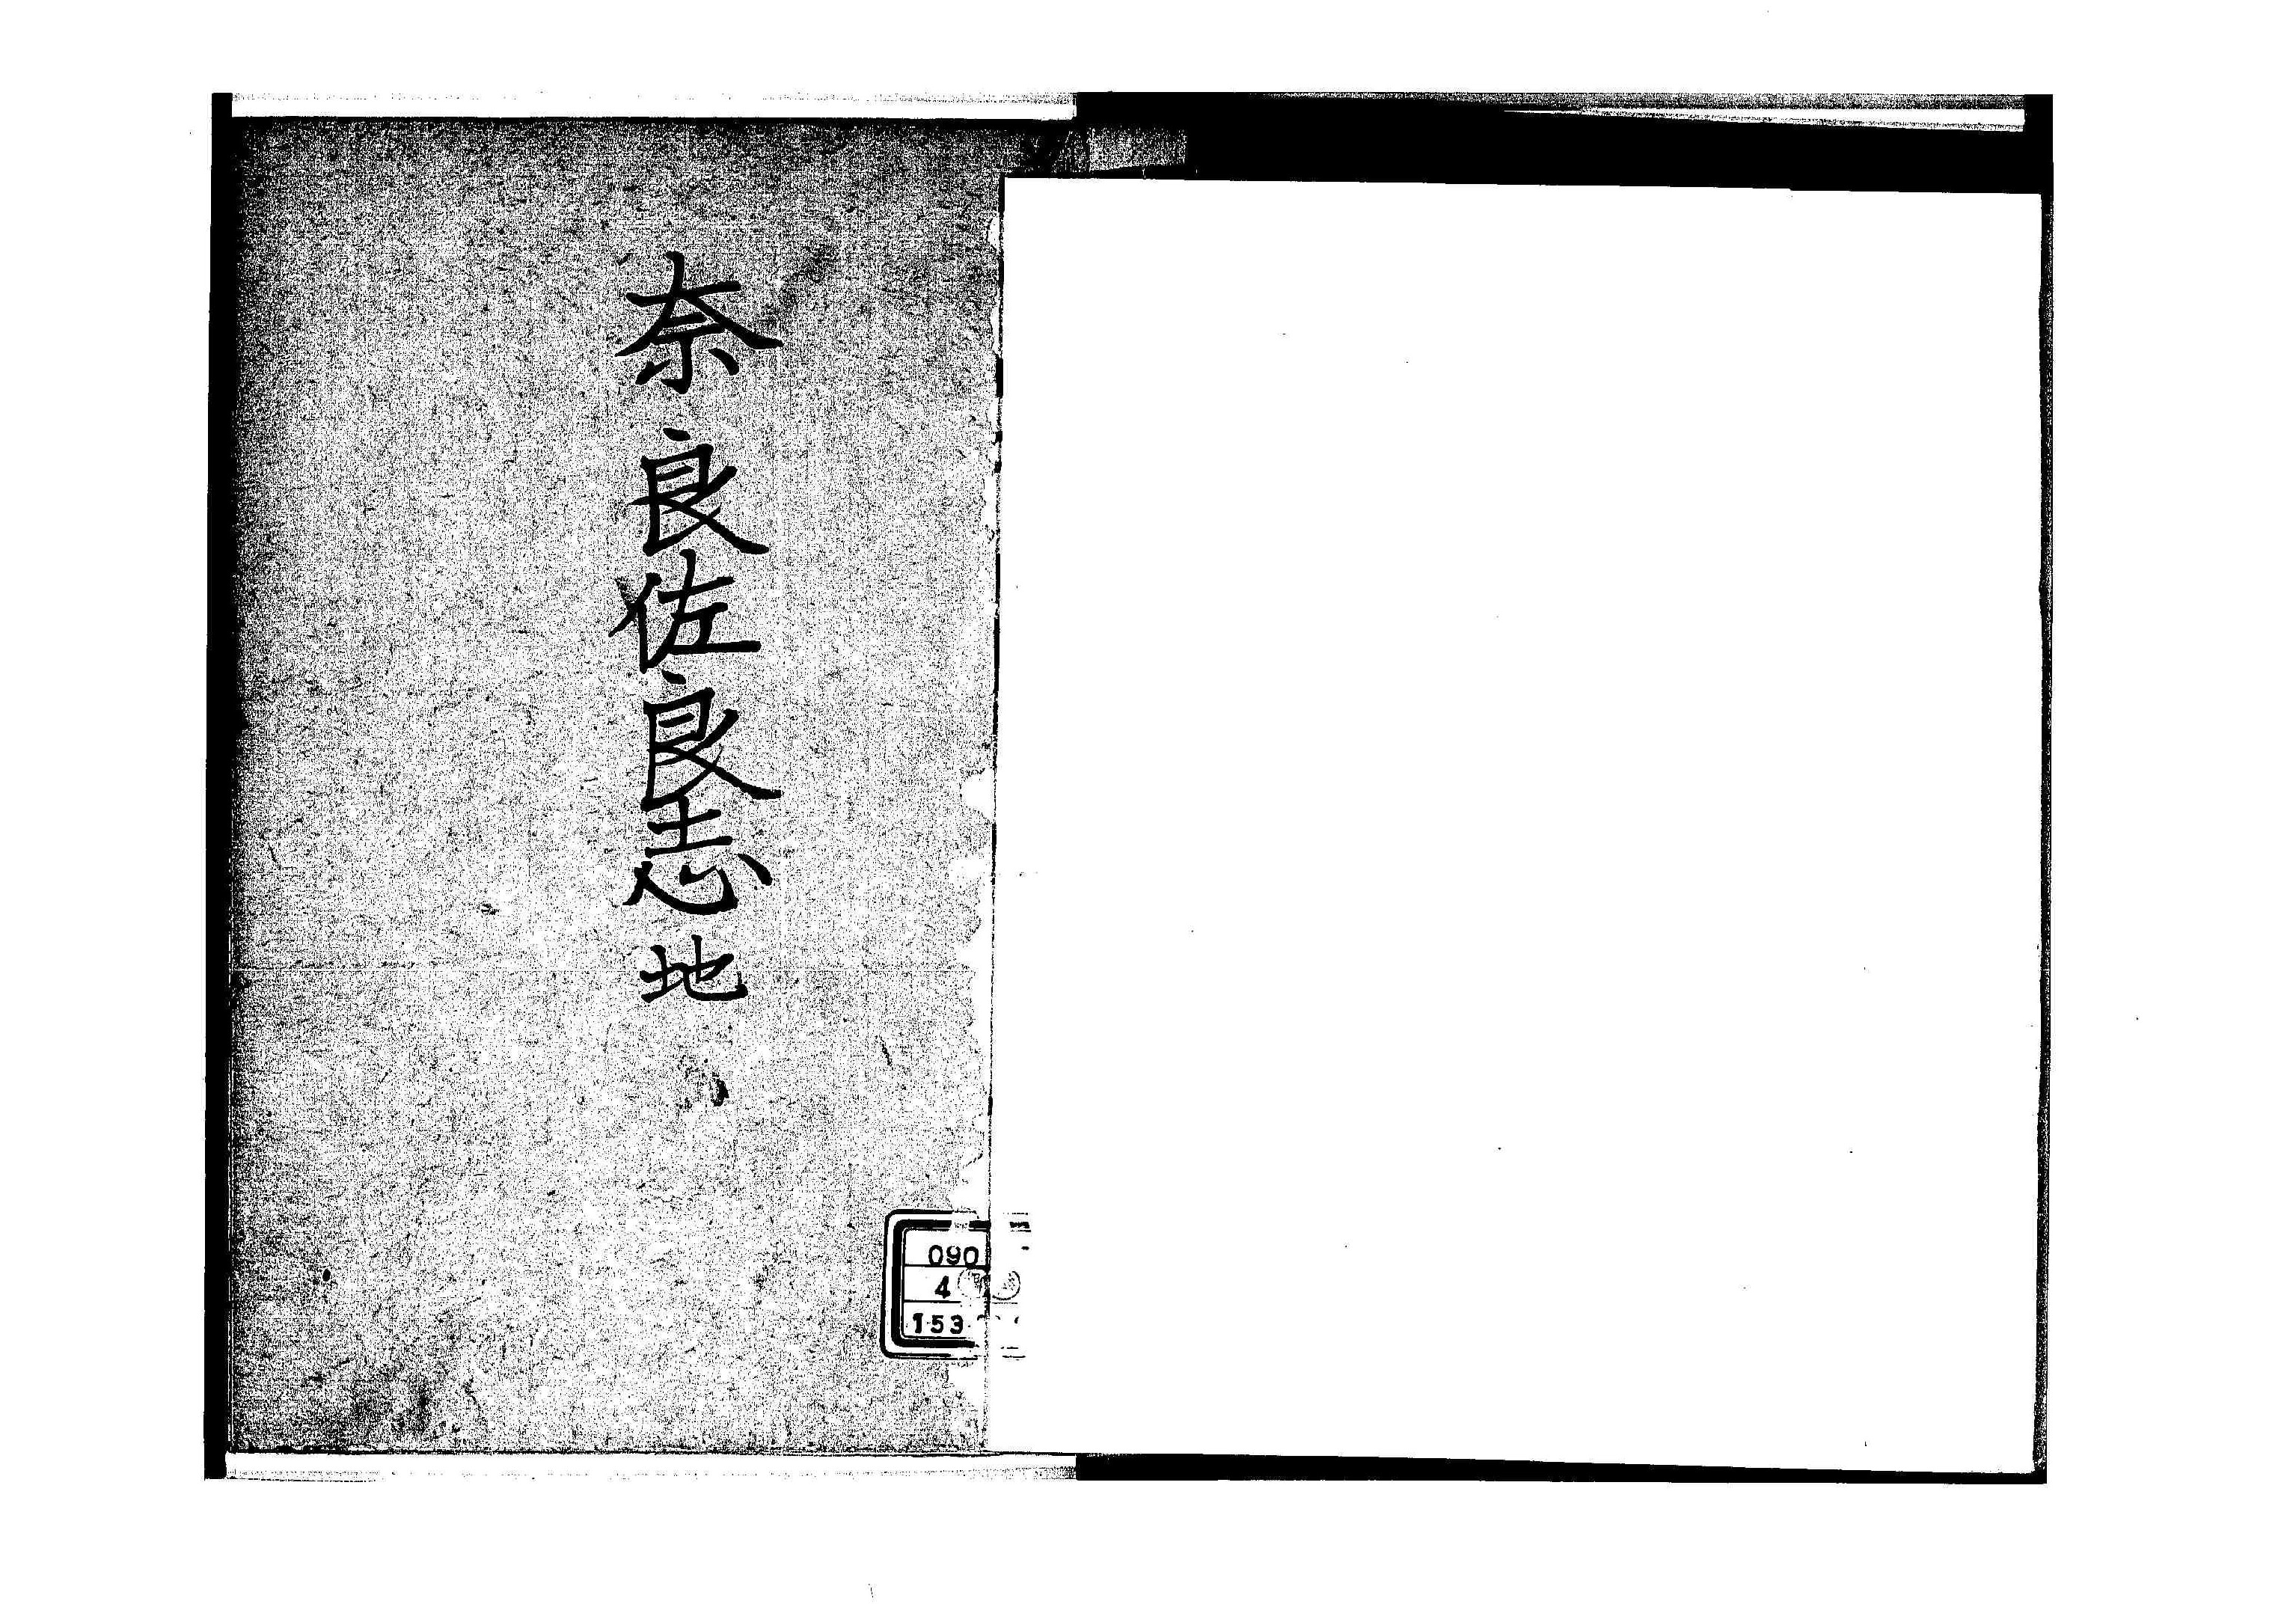 奈良佐良志 地
090
4
153